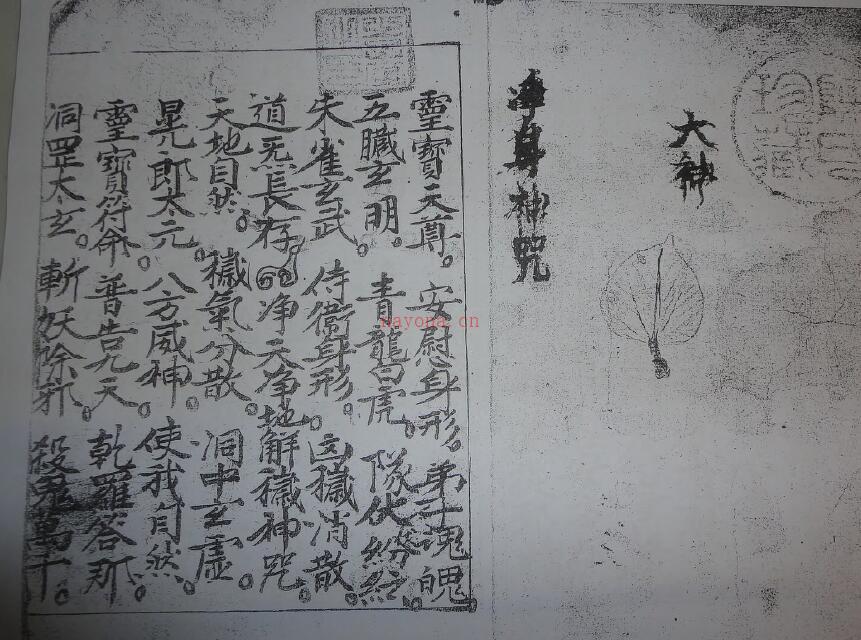 珍藏
大神
净身神咒
靈寶天尊。安慰身形。弟子魂魄。
五臟玄明。青龍白虎。隊伏紛紜。
朱雀玄武。侍衛身形。凶穢消散。
道炁長存。净天净地解穢神咒。
天地自然。穢氣分散。洞中玄虛。
晃郎太元。八方威神。使我自然。
靈寶符命。普告九天。乾羅答那。
洞罡太玄。斬妖除邪。殺鬼萬千。
nayona.cn